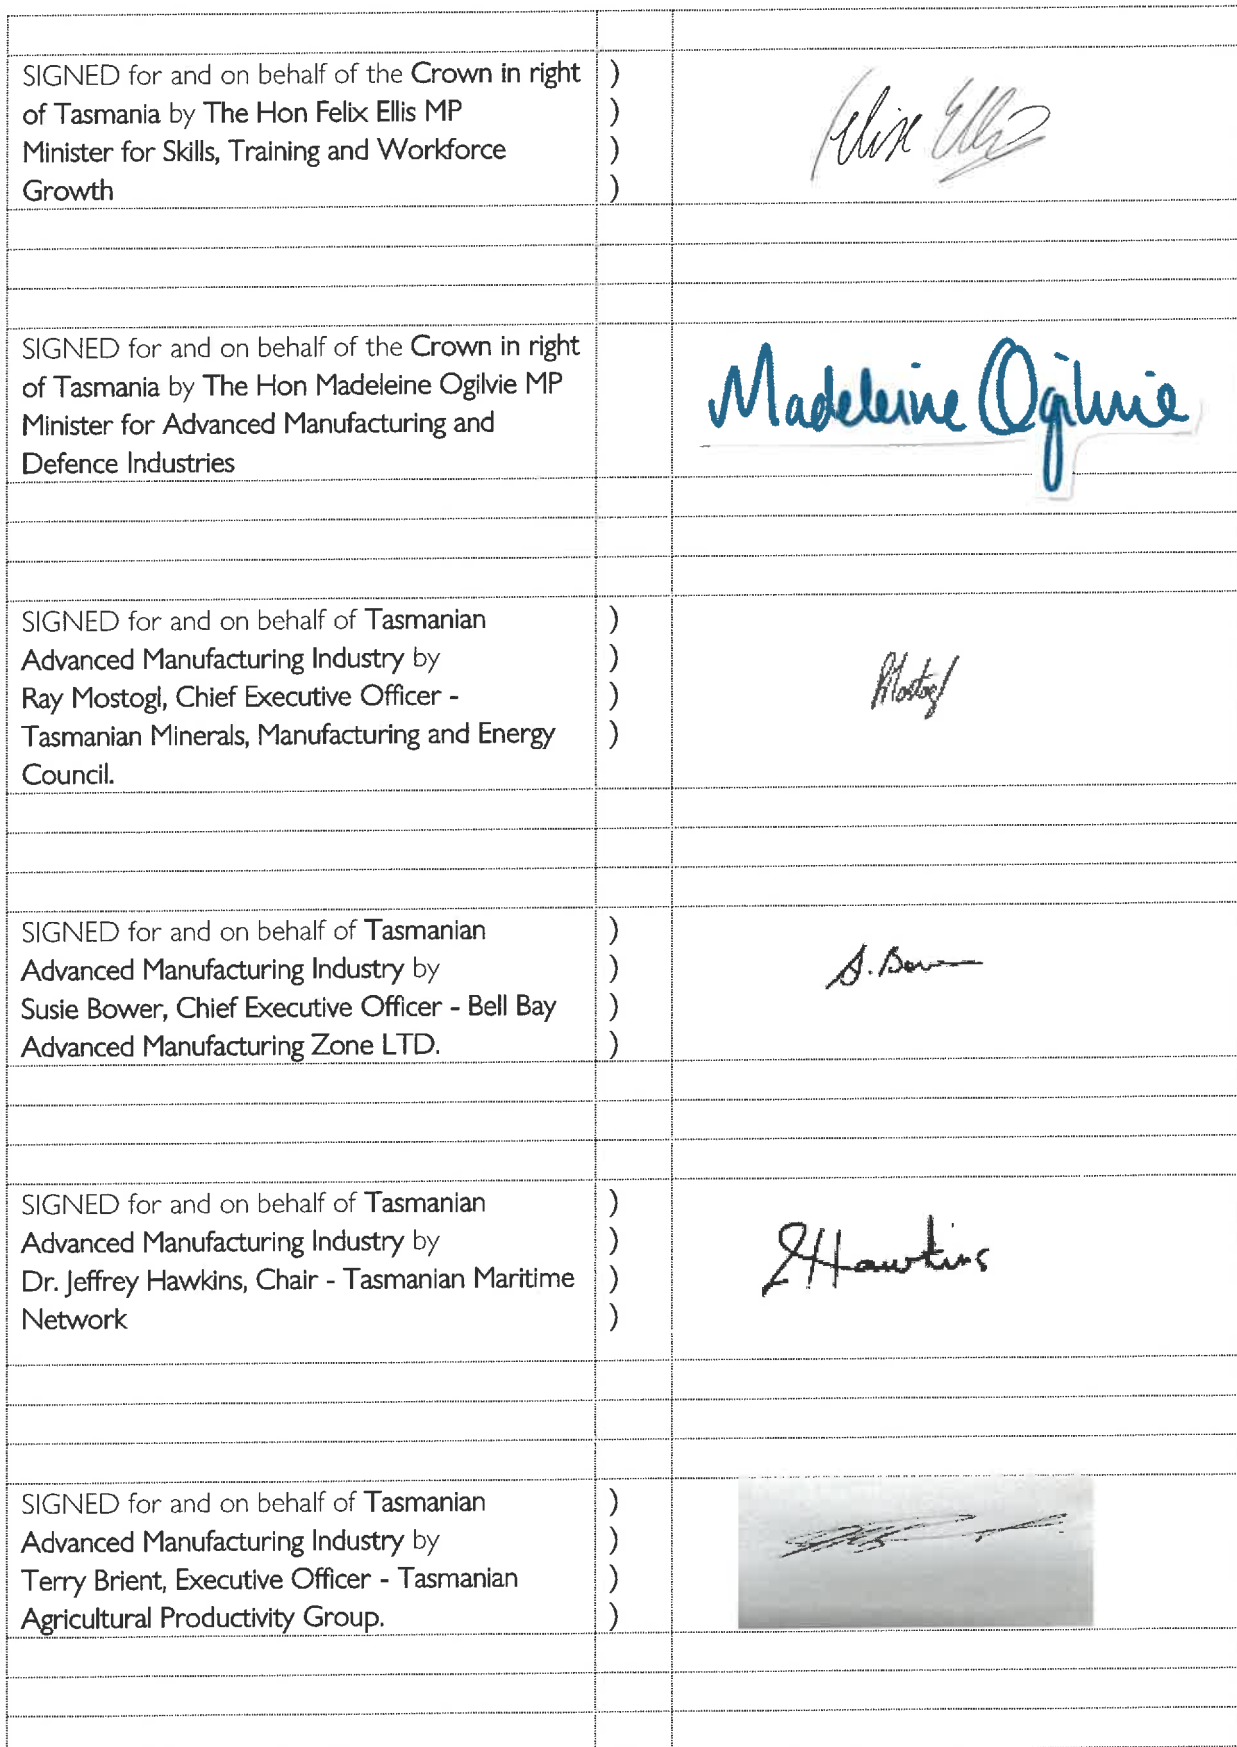 SIGNED for and on behalf of the Crown in right )
of Tasmania by The Hon Felix Ellis MP )
Minister for Skills, Training and Workforce )
Growth )
Felix Ellis
SIGNED for and on behalf of the Crown in right
of Tasmania by The Hon Madeleine Ogilvie MP
Minister for Advanced Manufacturing and
Defence Industries
Madeleine Ogilvie
SIGNED for and on behalf of Tasmanian )
Advanced Manufacturing Industry by )
Ray Mostogl, Chief Executive Officer - )
Tasmanian Minerals, Manufacturing and Energy )
Council.
RMostogl
SIGNED for and on behalf of Tasmanian )
Advanced Manufacturing Industry by )
Susie Bower, Chief Executive Officer - Bell Bay )
Advanced Manufacturing Zone LTD. )
S. Bower
SIGNED for and on behalf of Tasmanian )
Advanced Manufacturing Industry by )
Dr. Jeffrey Hawkins, Chair - Tasmanian Maritime )
Network )
JHawkins
SIGNED for and on behalf of Tasmanian )
Advanced Manufacturing Industry by )
Terry Brient, Executive Officer - Tasmanian )
Agricultural Productivity Group. )